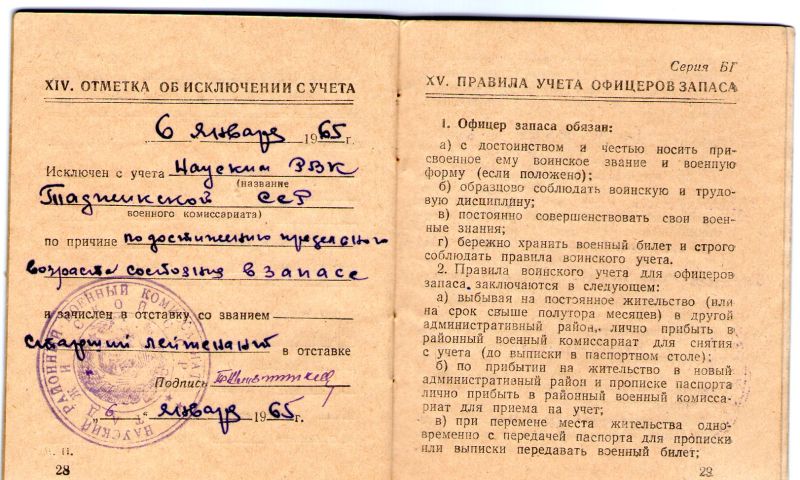 XIV. ОТМЕТКА ОБ ИСКЛЮЧЕНИИ С УЧЕТА
6 января 1965 г.
Исключен с учета Науским РВК
(название
Таджикской ССР
военного комиссариата)
по причине по достижению предельного
возраста состояния в запасе
и зачислен в отставку со званием
старший лейтенант в отставке
Подпись
"6" января 1965 г.
М. П.
28
НАУСКИЙ РАЙОННЫЙ ВОЕННЫЙ КОМИССАРИАТ
Серия БГ
XV. ПРАВИЛА УЧЕТА ОФИЦЕРОВ ЗАПАСА
1. Офицер запаса обязан:
а) с достоинством и честью носить при-
своенное ему воинское звание и военную
форму (если положено);
б) образцово соблюдать воинскую и трудо-
вую дисциплину;
в) постоянно совершенствовать свои воен-
ные знания;
г) бережно хранить военный билет и строго
соблюдать правила воинского учета.
2. Правила воинского учета для офицеров
запаса заключаются в следующем:
а) выбывая на постоянное жительство (или
на срок свыше полутора месяцев) в другой
административный район, лично прибыть в
районный военный комиссариат для снятия
с учета (до выписки в паспортном столе);
б) по прибытии на жительство в новый
административный район и прописке паспорта
лично прибыть в районный военный комисса-
риат для приема на учет;
в) при перемене места жительства одно-
временно с передачей паспорта для прописки
или выписки передавать военный билет;
29